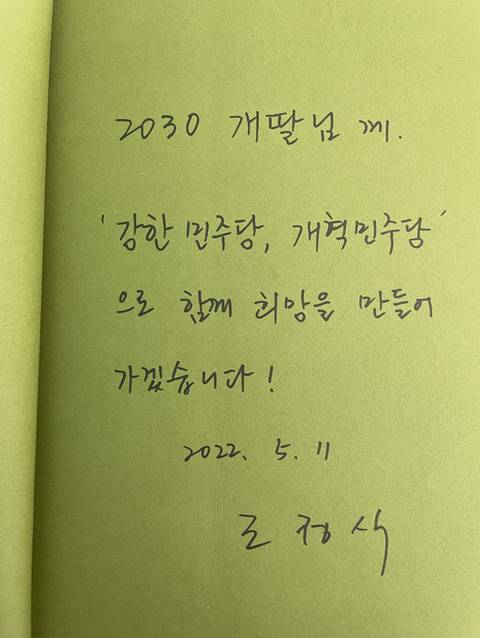 2030 개딸님 께.
'강한 민주당, 개혁민주당'
으로 함께 희망을 만들어
가겠습니다!
2022. 5. 11
조정식